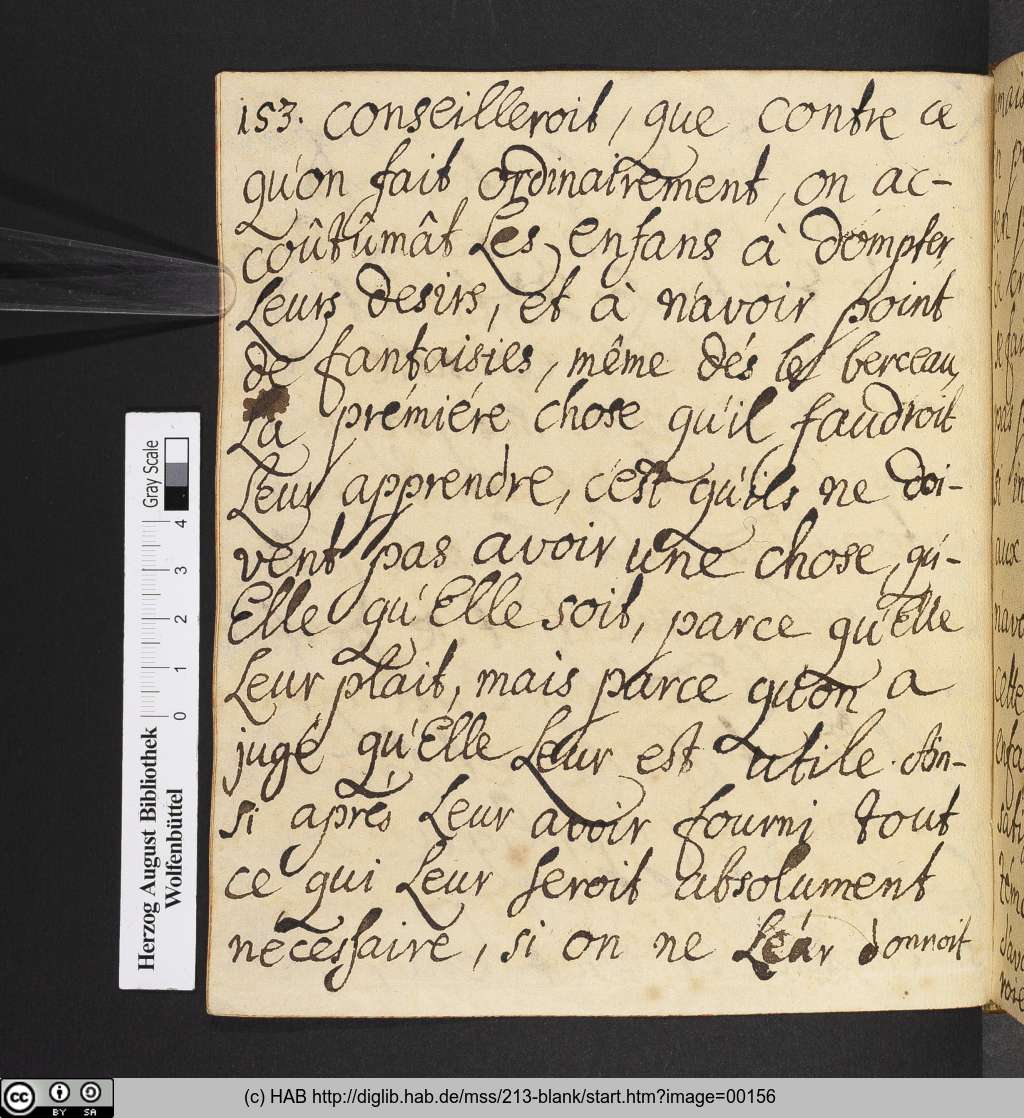 153. conseilleroit, que contre ce
qu'on fait ordinairement, on ac-
coûtûmât Les enfans à dompter,
Leurs desirs, et à n'avoir point
de fantaisies, même dés le berceau,
La prémiére chose qu'il faudroit
Leur apprendre, c'est qu'ils ne doi-
vent pas avoir une chose, qu'-
Elle qu'Elle soit, parce qu'Elle
Leur plait, mais parce qu'on a
jugé qu'Elle Leur est utile. Ain-
si aprés Leur avoir fourni tout
ce qui Leur seroit absolument
nécessaire, si on ne Leur donnoit
Gray Scale
0 1 2 3 4
Herzog August Bibliothek
Wolfenbüttel
cc BY SA
(c) HAB http://diglib.hab.de/mss/213-blank/start.htm?image=00156